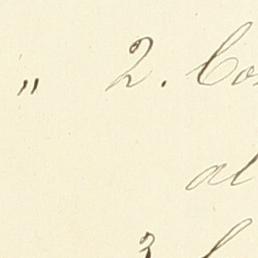 " 2. Co
al
3